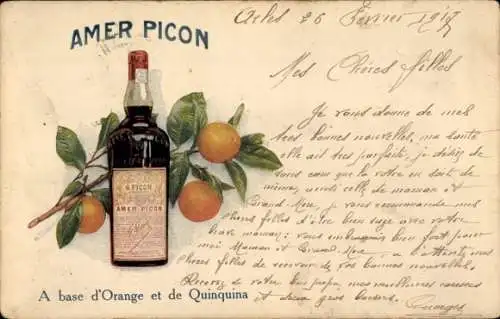 AMER PICON
26 Février 1917
Mes Chères filles
Je vous donne de mes
très bonnes nouvelles, ma santé
elle est très parfaite, je désire
que la votre en soit de
même, celle de maman et
Grand Mère, je vous recommande mes
chères filles d'être bien sage avec votre
maman; vous bien fort pour
moi Maman et Grand Mère,
chères filles de recevoir de vos bonnes nouvelles.
Recevez de votre papa, mes meilleures caresses
et deux gros baisers. Georges
G. PICON
AMER PICON
A base d'Orange et de Quinquina